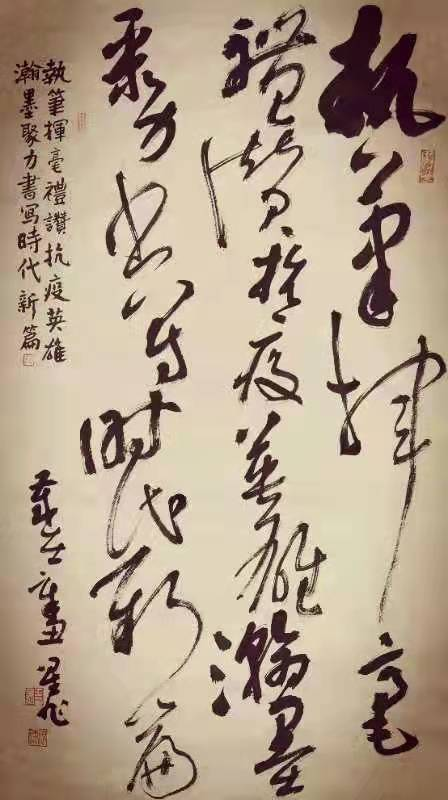 執筆揮毫
禮讚抗疫英雄瀚墨
聚力書写時代新篇
執筆揮毫禮讚抗疫英雄
瀚墨聚力書写時代新篇